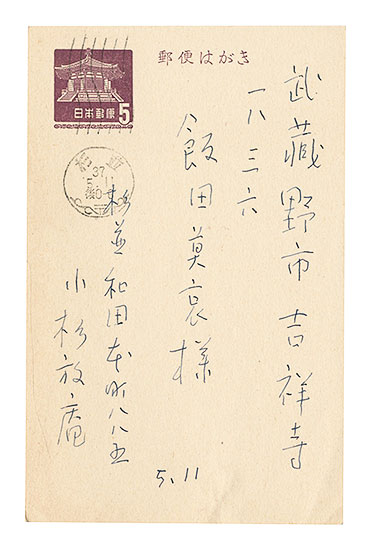 郵便はがき
日本郵便 5
武蔵野市吉祥寺
一八三六
飯田莫哀様
杉並
37
5
杉並和田本町八八五
小杉放庵
5.11